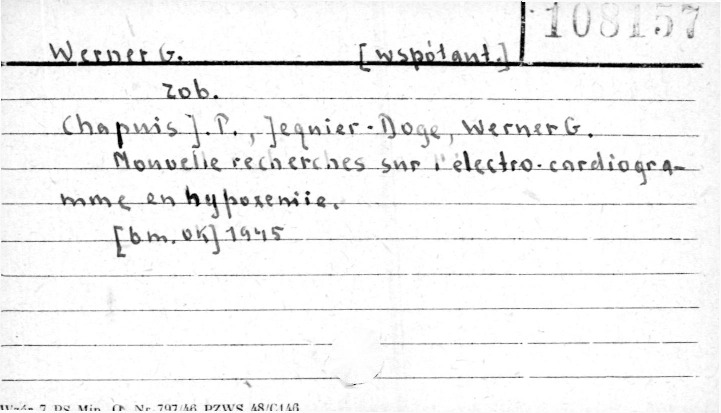 108157
Werner G. [współaut.]
zob.
Chapuis J. P., Jequier-Doge, Werner G.
Nouvelle recherches sur l'électro-cardiogra-
mme en hypoxemiie.
[bm. ok] 1945
Wzór 7 PS Min. O. Nr 797/46 PZWS 48/G146